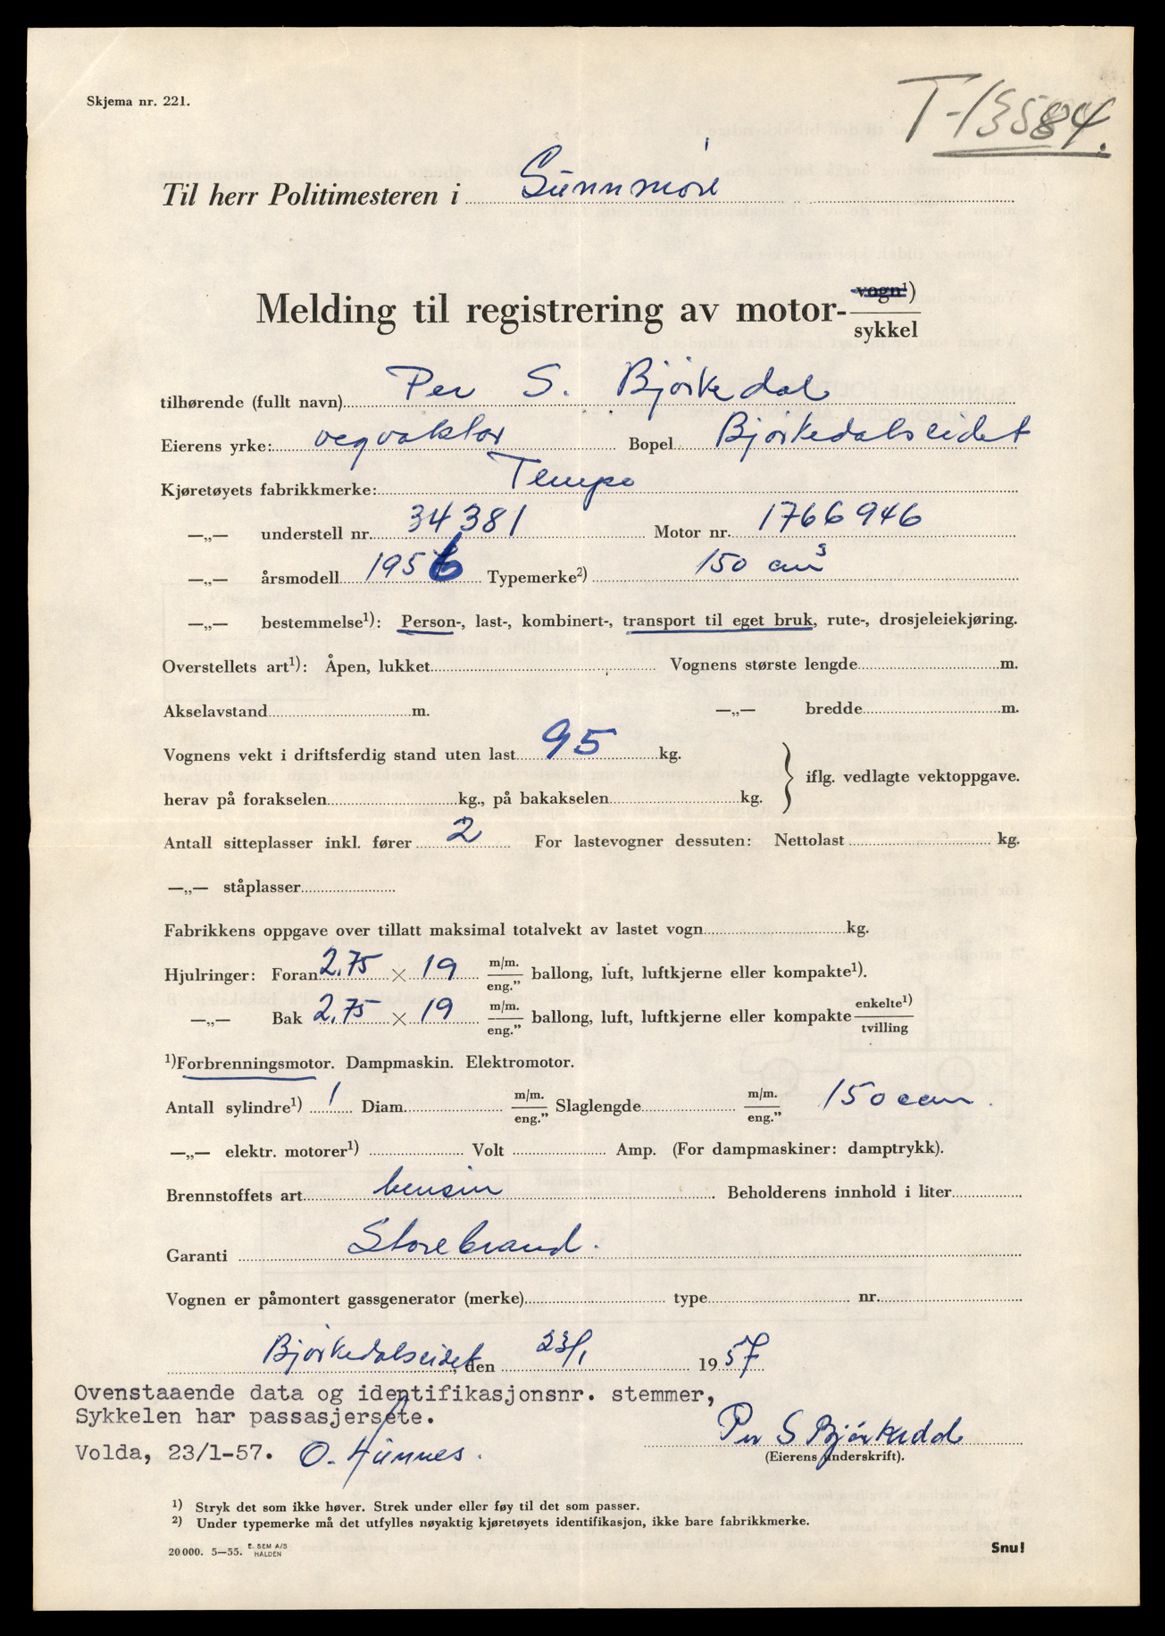 Skjema nr. 221.
T-13584.
Til herr Politimesteren i Sunnmøre
Melding til registrering av motor- vogn¹)
sykkel
tilhørende (fullt navn) Per S. Bjørkedal
Eierens yrke: vegvaktar Bopel Bjørkedalseidet
Kjøretøyets fabrikkmerke: Tempo
—„— understell nr. 34381 Motor nr. 1766946
—„— årsmodell 1956 Typemerke²) 150 cm³
—„— bestemmelse¹): Person-, last-, kombinert-, transport til eget bruk, rute-, drosjeleiekjøring.
Overstellets art¹): Åpen, lukket Vognens største lengde m.
Akselavstand m. —„— bredde m.
Vognens vekt i driftsferdig stand uten last 95 kg.
iflg. vedlagte vektoppgave.
herav på forakselen kg., på bakakselen kg.
Antall sitteplasser inkl. fører 2 For lastevogner dessuten: Nettolast kg.
—„— ståplasser
Fabrikkens oppgave over tillatt maksimal totalvekt av lastet vogn kg.
Hjulringer: Foran 2.75 × 19 m/m. eng.” ballong, luft, luftkjerne eller kompakte¹).
—„— Bak 2.75 × 19 m/m. eng.” ballong, luft, luftkjerne eller kompakte enkelte¹) tvilling
¹)Forbrenningsmotor. Dampmaskin. Elektromotor.
Antall sylindre¹) 1 Diam. m/m. eng.” Slaglengde m/m. eng.” 150 ccm.
—„— elektr. motorer¹) Volt Amp. (For dampmaskiner: damptrykk).
Brennstoffets art bensin Beholderens innhold i liter
Garanti Storebrand.
Vognen er påmontert gassgenerator (merke) type nr.
Bjørkedalseidet, den 23/1 1957
Ovenstaaende data og identifikasjonsnr. stemmer,
Sykkelen har passasjersete.
Per S Bjørkedal
Volda, 23/1-57. O. Hunnes.
(Eierens underskrift).
¹) Stryk det som ikke høver. Strek under eller føy til det som passer.
²) Under typemerke må det utfylles nøyaktig kjøretøyets identifikasjon, ikke bare fabrikkmerke.
20 000. 5—55. E. SEM A/S HALDEN
Snu!